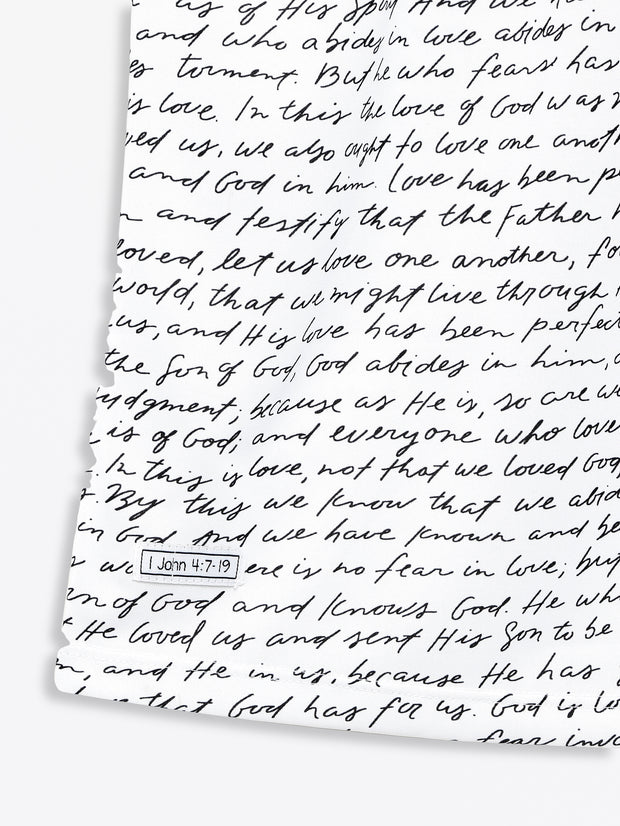 us of His Spirit And we
and who abides in love abides in
torment. But he who fears has
is love. In this the love of God was
us, we also ought to love one
and God in him. Love has been
and testify that the Father
loved, let us love one another,
world, that we might live through
us, and His love has been
the Son of God, God abides in him,
judgment; because as He is, so are
is of God; and everyone who
In this is love, not that we loved God,
By this we know that we
in God. And we have known and
1 John 4:7-19
ere is no fear in love; but
of God and knows God. He
He loved us and sent His Son to be
, and He in us, because He has
that God has for us. God is
fear